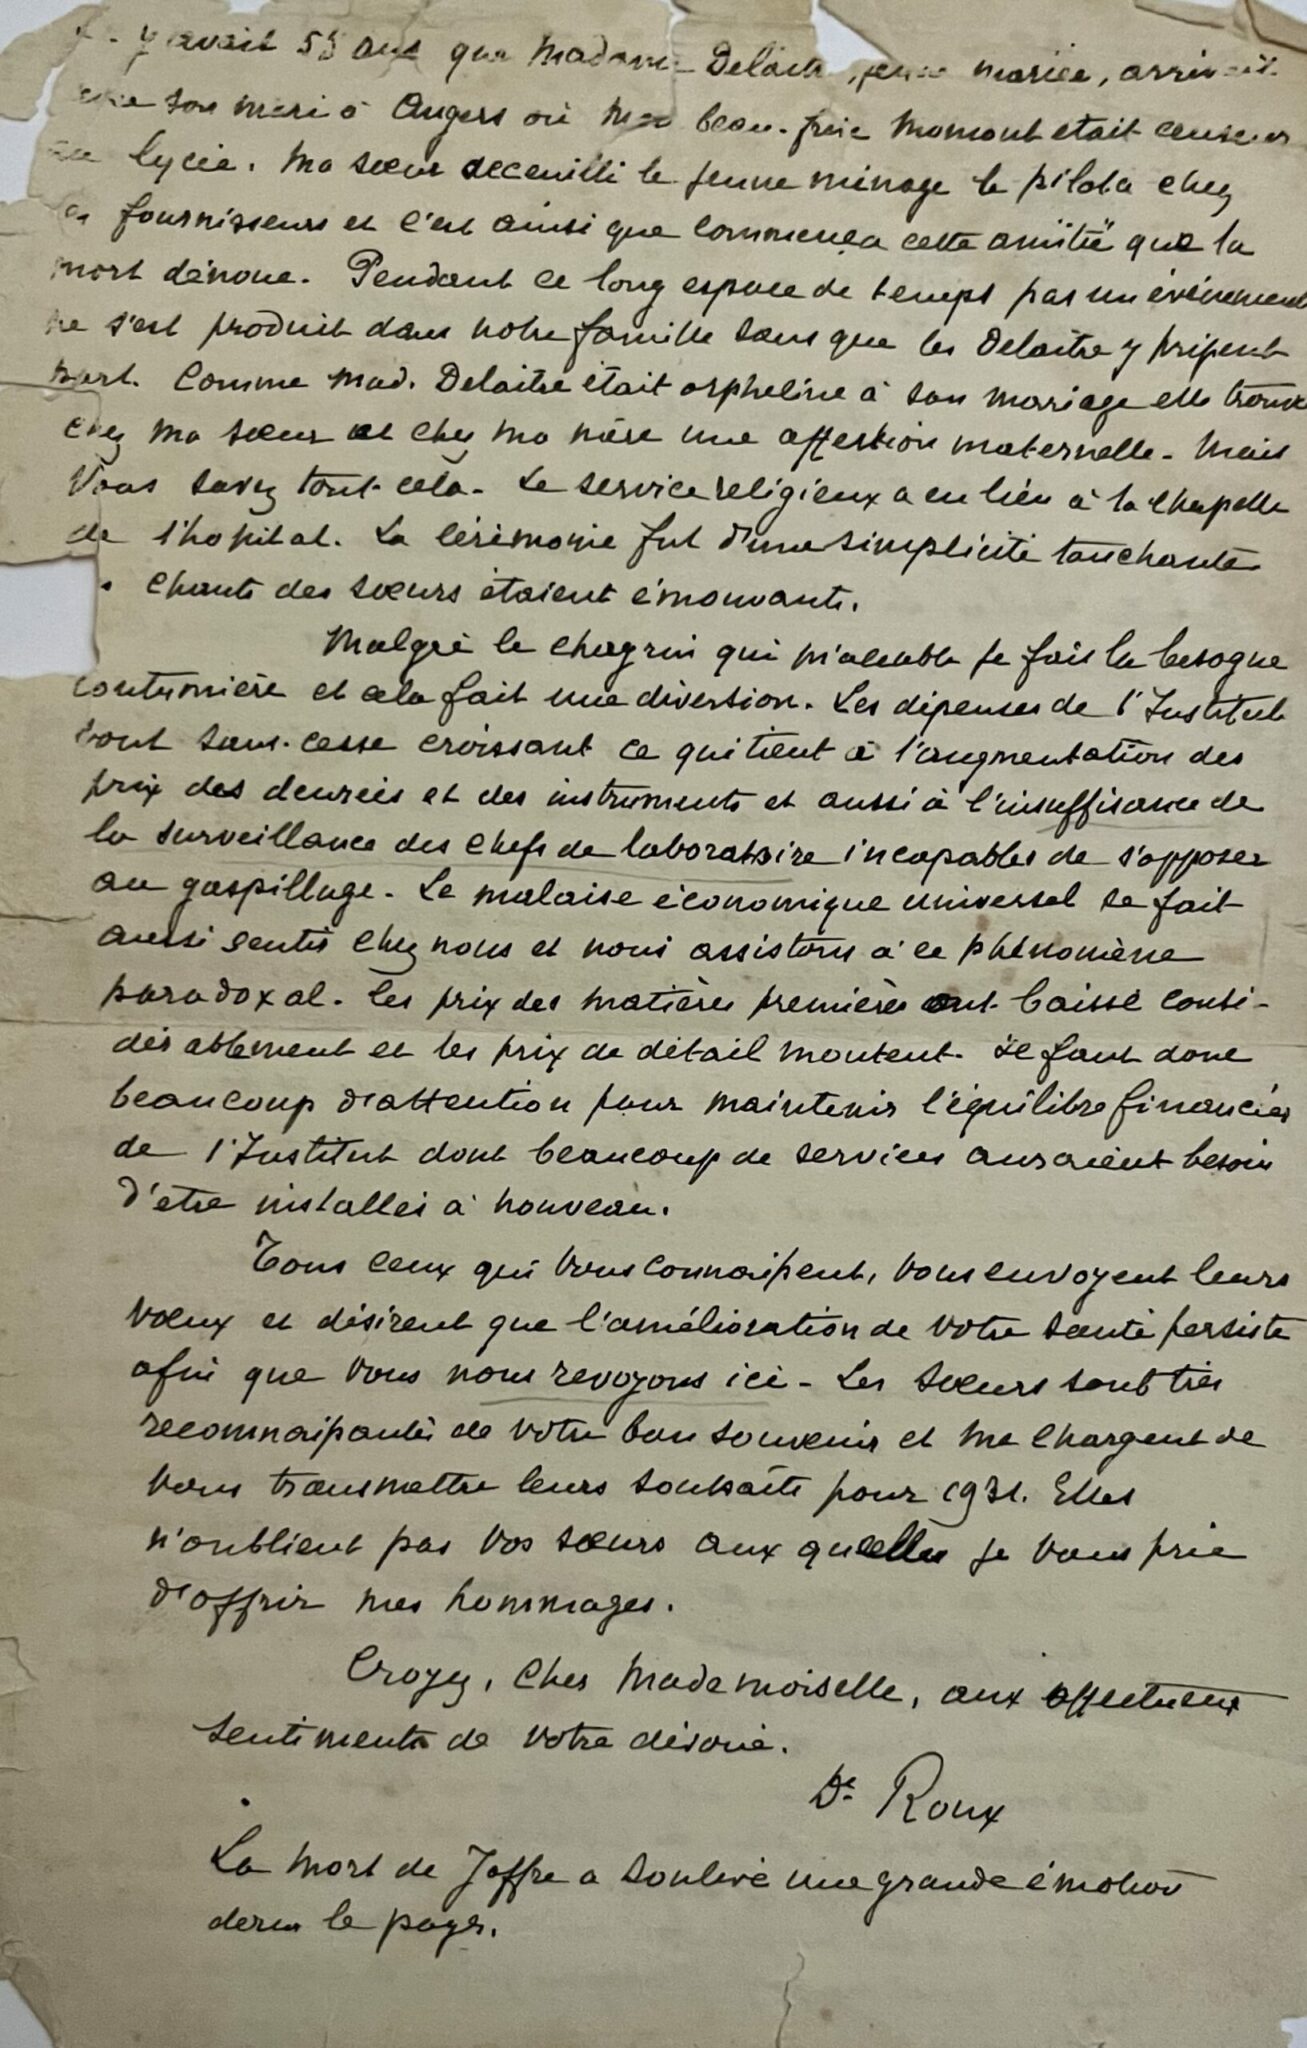 y avait 55 ans que Madame Delaitre, jeune mariée, arrivait
son mari à Angers où mon beau-frère Momont était censeur
au lycée. Ma sœur accueillit le jeune ménage le pilota chez
les fournisseurs et c'est ainsi que commença cette amitié que la
mort dénoue. Pendant ce long espace de temps pas un évènement
ne s'est produit dans notre famille sans que les Delaitre y prissent
part. Comme Mad. Delaitre était orpheline à son mariage elle trouva
chez ma sœur et chez ma mère une affection maternelle. Mais
vous savez tout cela. Le service religieux a eu lieu à la chapelle
de l'hopital. La cérémonie fut d'une simplicité touchante
chants des sœurs étaient émouvants.
Malgré le chagrin qui m'accable je fais la besogne
coutumière et cela fait une diversion. Les dépenses de l'Institut
vont sans cesse croissant ce qui tient à l'augmentation des
prix des denrées et des instruments et aussi à l'insuffisance de
la surveillance des chefs de laboratoire incapables de s'opposer
au gaspillage. Le malaise économique universel se fait
aussi sentir chez nous et nous assistons à ce phénomène
paradoxal. les prix des matières premières ont baissé consi-
dérablement et les prix de détail montent. Il faut donc
beaucoup d'attention pour maintenir l'équilibre financier
de l'Institut dont beaucoup de services auraient besoin
d'etre installés à nouveau.
Tous ceux qui vous connaissent, vous envoyent leurs
vœux et désirent que l'amélioration de votre santé persiste
afin que vous nous revoyons ici. Les Sœurs sont très
reconnaissantes de votre bon souvenir et me chargent de
vous transmettre leurs souhaits pour 1931. Elles
n'oublient pas vos sœurs aux quelles je vous prie
d'offrir mes hommages.
Croyez, Cher Mademoiselle, aux affectueux
sentiments de votre dévoué.
Dr Roux
La mort de Joffre a soulevé une grande émotion
dans le pays.